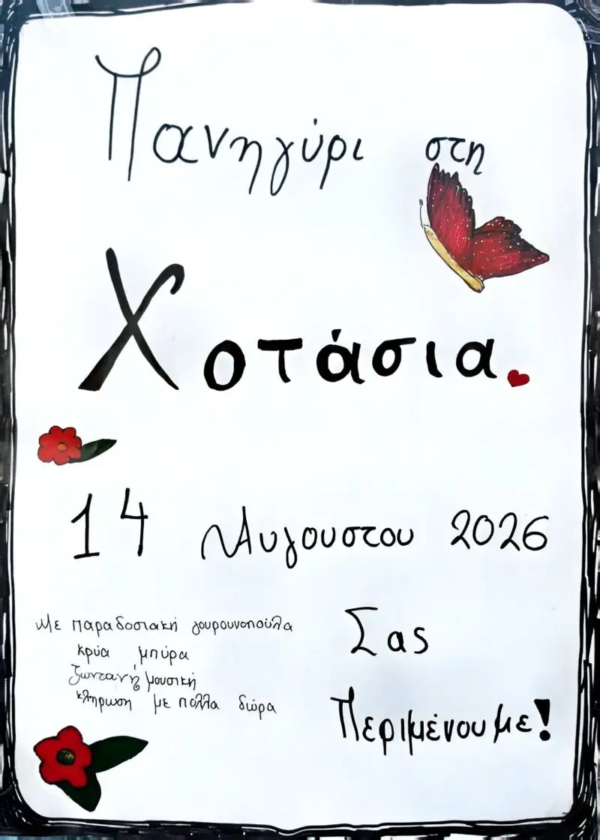 Πανηγύρι στη
Χοτάσια
14 Αυγουστου 2026
Με παραδοσιακή γουρουνοπούλα
κρύα μπύρα
ζωντανή μουσική
κλήρωση με πολλα δώρα
Σας
Περιμένουμε!